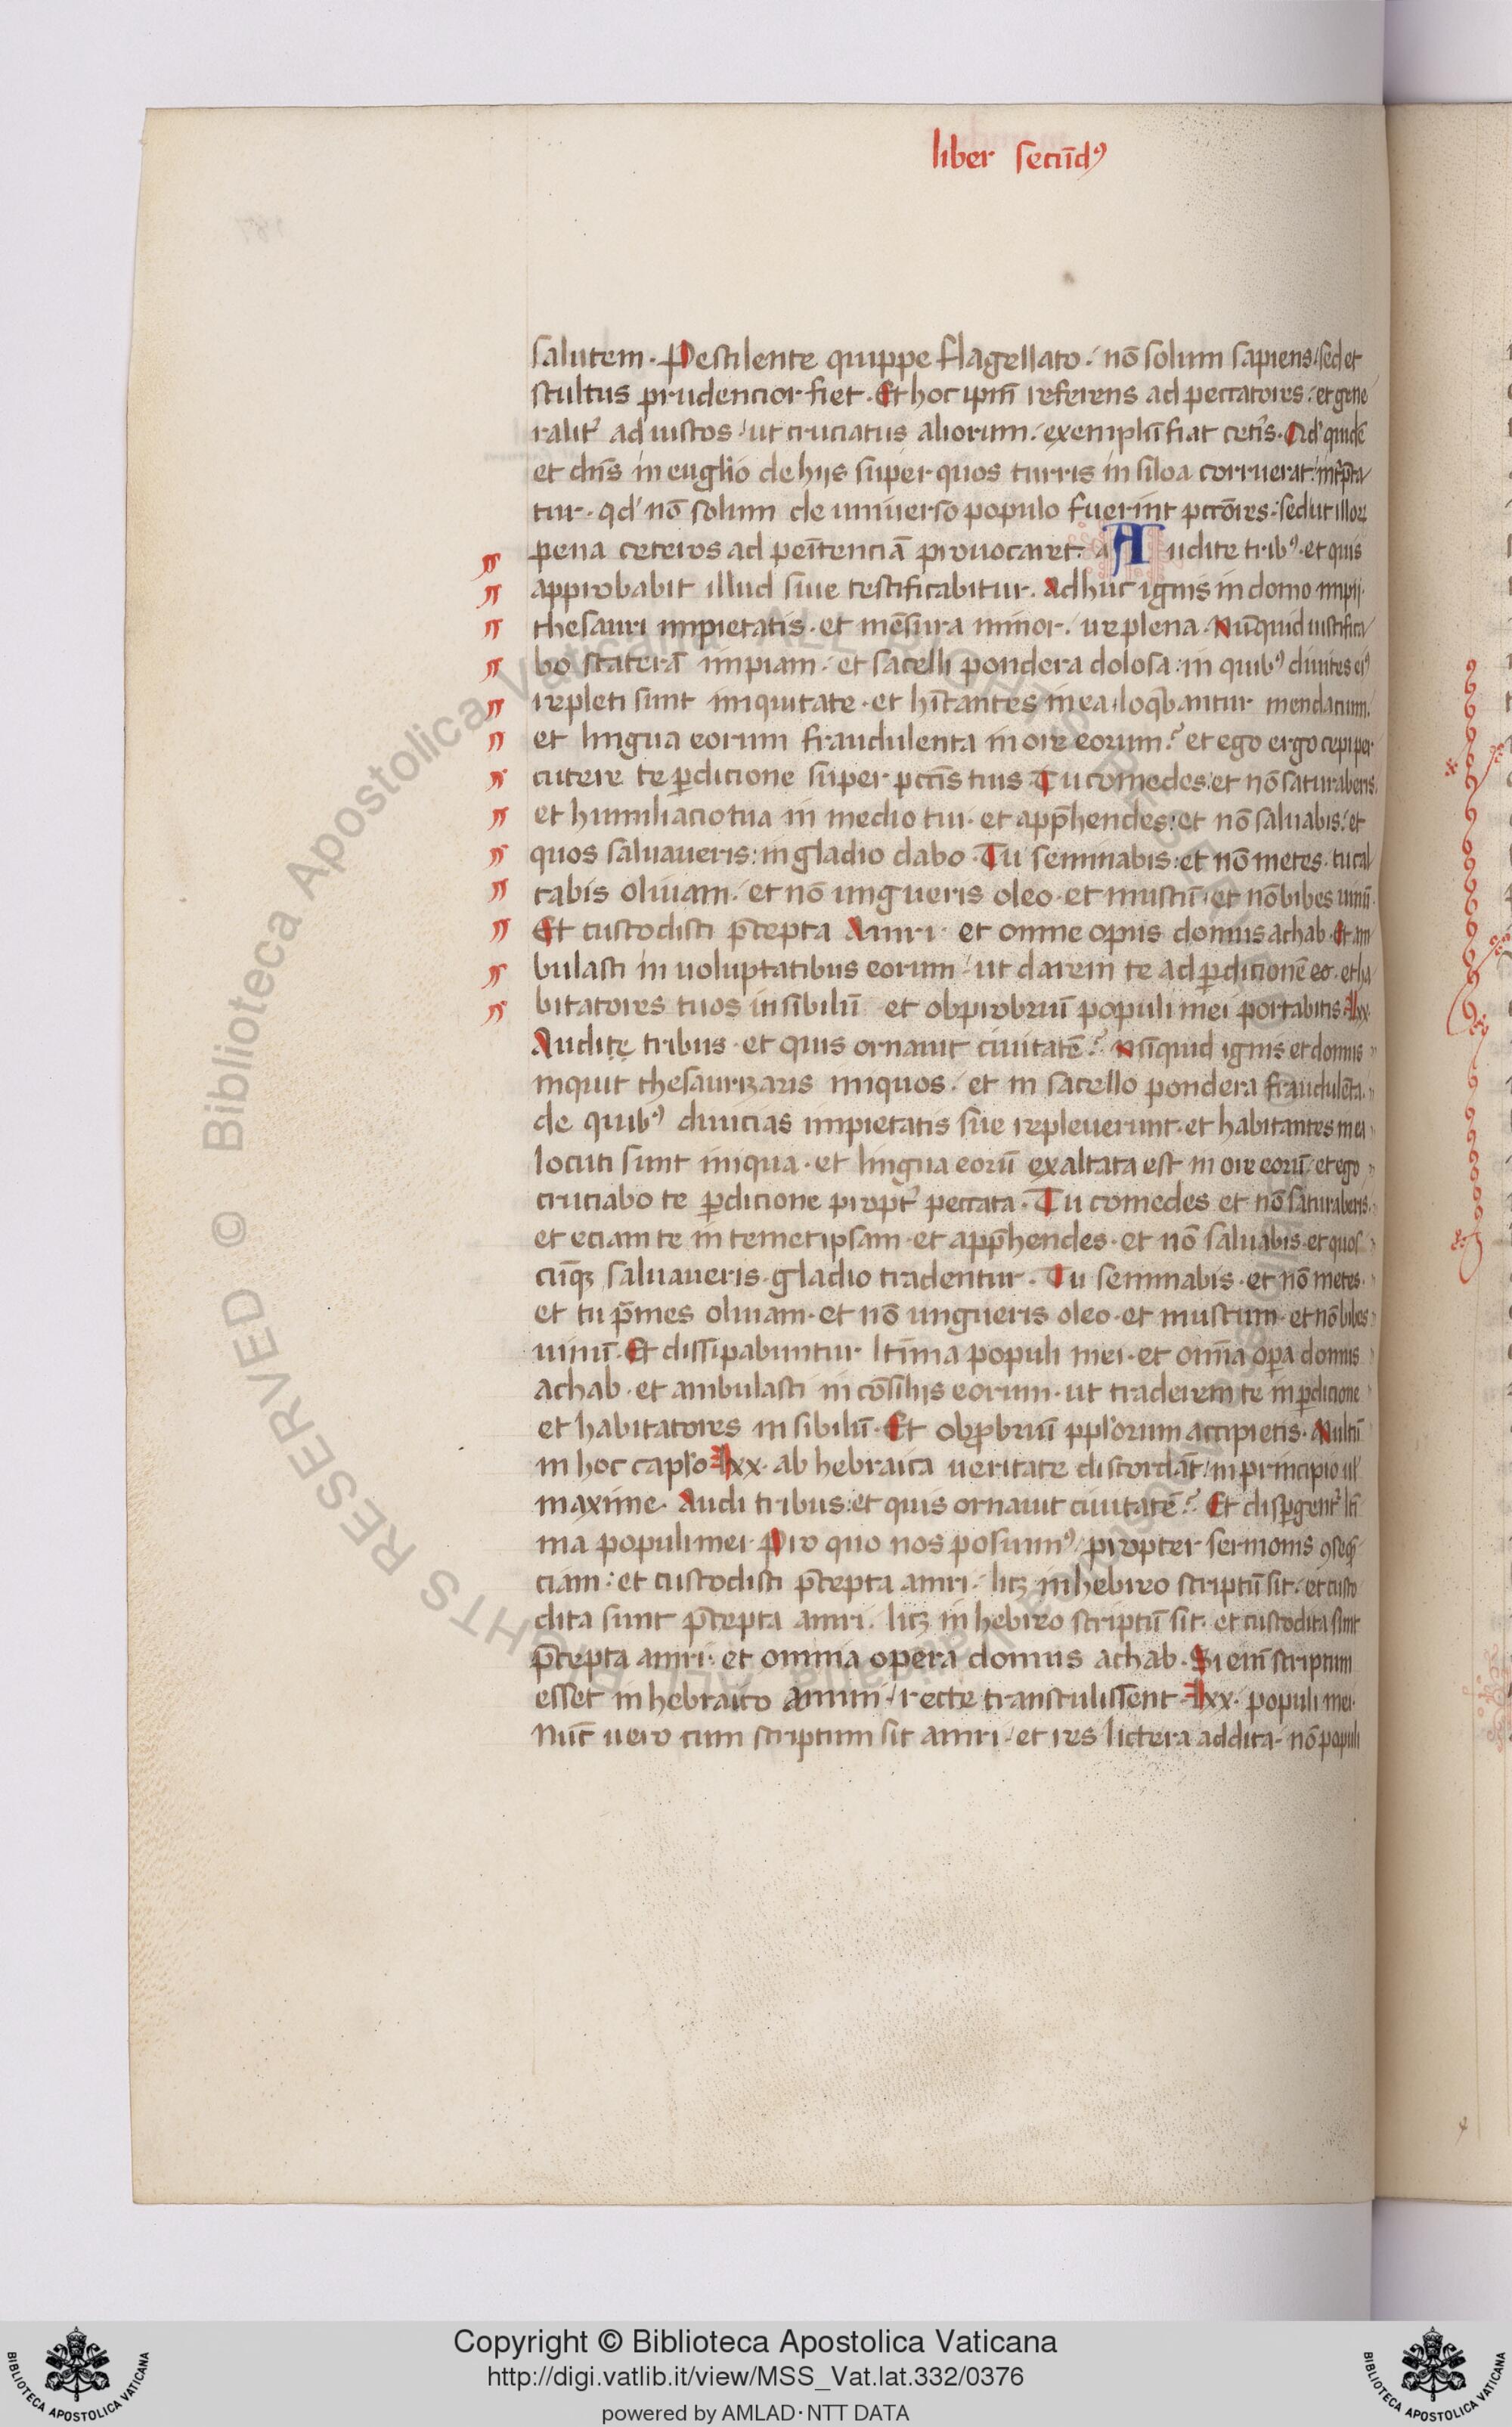 liber secūdꝰ
salutem. Pestilente quippe flagellato / nō solum sapiens / sed et
stultus prudencior fiet. Et hoc ipm̄ referens ad peccatores / et gene
ralit̉ ad iustos / ut cruciatus aliorum / exemplū fiat cet̉is. Qd' quidē
et dn̄s in euḡlio de hijs super quos turris in siloa corruerat / int̉p̄ta
tur. qd' nō solum de universo populo fuerint pcc̄ōres: sed ut illoꝝ
pena ceteros ad penīt̄enciā provocaret. a Audite tribꝰ. et quis
approbabit illud sive testificabitur. Adhuc ignis in domo impij.
thesauri impietatis. et mēsura minor. ire plena. Nūquid iustifica
bo staterā impiam. et sacelli pondera dolosa: in quibꝰ divites eiꝰ
repleti sunt iniquitate. et hītantes in ea loq̄bantur mendacium.
et lingua eorum fraudulenta in ore eorum? et ego ergo cepi per
cutere te ꝑdicione super pctīs tuis. Tu comedes. et nō saturaberis
et humiliacio tua in medio tui. et app̄hendes: et nō salvabis. et
quos salvaveris: in gladio dabo. Tu seminabis: et nō metes. tu cal
cabis olivam. et nō ungueris oleo. et mustū. et nō bibes vinū.
Et custodisti p̄cepta Amri. et omne opus domus achab. Et am
bulasti in voluptatibus eorum / ut darem te ad ꝑdicionē eo. et ha
bitatores tuos in sibilū et obprobriū populi mei portabitis. lxx.
Audite tribus. et quis ornavit civitatē? Nūquid ignis et domus
iniqui thesaurizans iniquos. et in sacello pondera fraudulēta.
de quibꝰ divicias impietatis sue repleverunt. et habitantes in ea
locuti sunt iniqua. et lingua eorū exaltata est in ore eorū. et ego
cruciabo te ꝑdicione propt̉ peccata. Tu comedes et nō saturaberis.
et eciam te in temetipsam. et app̄hendes. et nō salvabis. et quos
cūqꝫ salvaveris. gladio tradentur. Tu seminabis. et nō metes.
et tu p̄mes olivam. et nō ungueris oleo. et mustum. et nō bibes
vinū. Et dissipabuntur ltīma populi mei. et omīa oꝑa domus
achab. et ambulasti in cōsilijs eorum. ut traderem te in ꝑdicione
et habitatores in sibilū. Et obꝓbriū ppl'orum accipietis. Multū
in hoc capl'o lxx. ab hebraica veritate discordāt / in principio ul'
maxime. Audi tribus: et quis ornavit civitatē? Et disꝑgent̉ ltī
ma populi mei. Pro quo nos posuimꝰ propter sermonis ꝯseq̄
ciam: et custodisti p̄cepta amri. licꝫ in hebreo scriptū sit. et custo
dita sunt p̄cepta amri. licꝫ in hebreo scriptū sit. et custodita sunt
p̄cepta amri. et omnia opera domus achab. Si enī scriptum
esset in hebraico Ammi / recte transtulissent lxx. populi mei.
Nūc vero cum scriptum sit amri / et res lictera addita. nō populi
Copyright © Biblioteca Apostolica Vaticana
http://digi.vatlib.it/view/MSS_Vat.lat.332/0376
powered by AMLAD·NTT DATA